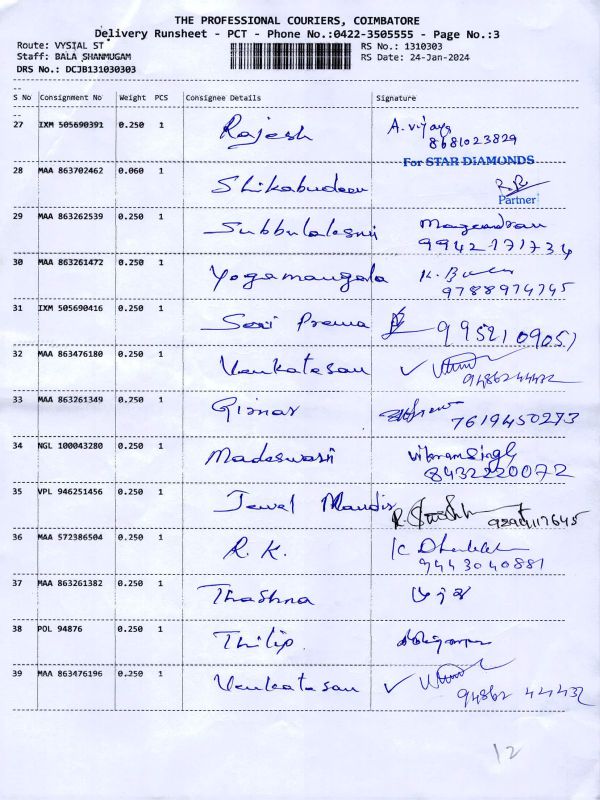 THE PROFESSIONAL COURIERS, COIMBATORE
Delivery Runsheet - PCT - Phone No.:0422-3505555 - Page No.:3
Route: VYSIAL ST RS No.: 1310303
Staff: BALA SHANMUGAM RS Date: 24-Jan-2024
DRS No.: DCJB131030303
S No Consignment No Weight PCS Consignee Details Signature
27 IXM 505690391 0.250 1 Rajesh A. Vijay
8681023829
For STAR DIAMONDS
28 MAA 863702462 0.060 1 Shikabudeen
Partner
29 MAA 863262539 0.250 1 Subbulalesmi
9942171734
30 MAA 863261472 0.250 1 Yogamangala
9788974745
31 IXM 505690416 0.250 1 Prema 9952109057
32 MAA 863476180 0.250 1 Venkatesan
9486244432
33 MAA 863261349 0.250 1 Girnar
7619450273
34 NGL 100043280 0.250 1 Madeswari Vikram Singh
8432220072
35 VPL 946251456 0.250 1 Jewel
36 MAA 572386504 0.250 1 R. K.
9443040881
37 MAA 863261382 0.250 1 Thashna
38 POL 94876 0.250 1 Thilip
39 MAA 863476196 0.250 1 Venkatesan
94862 44432
12